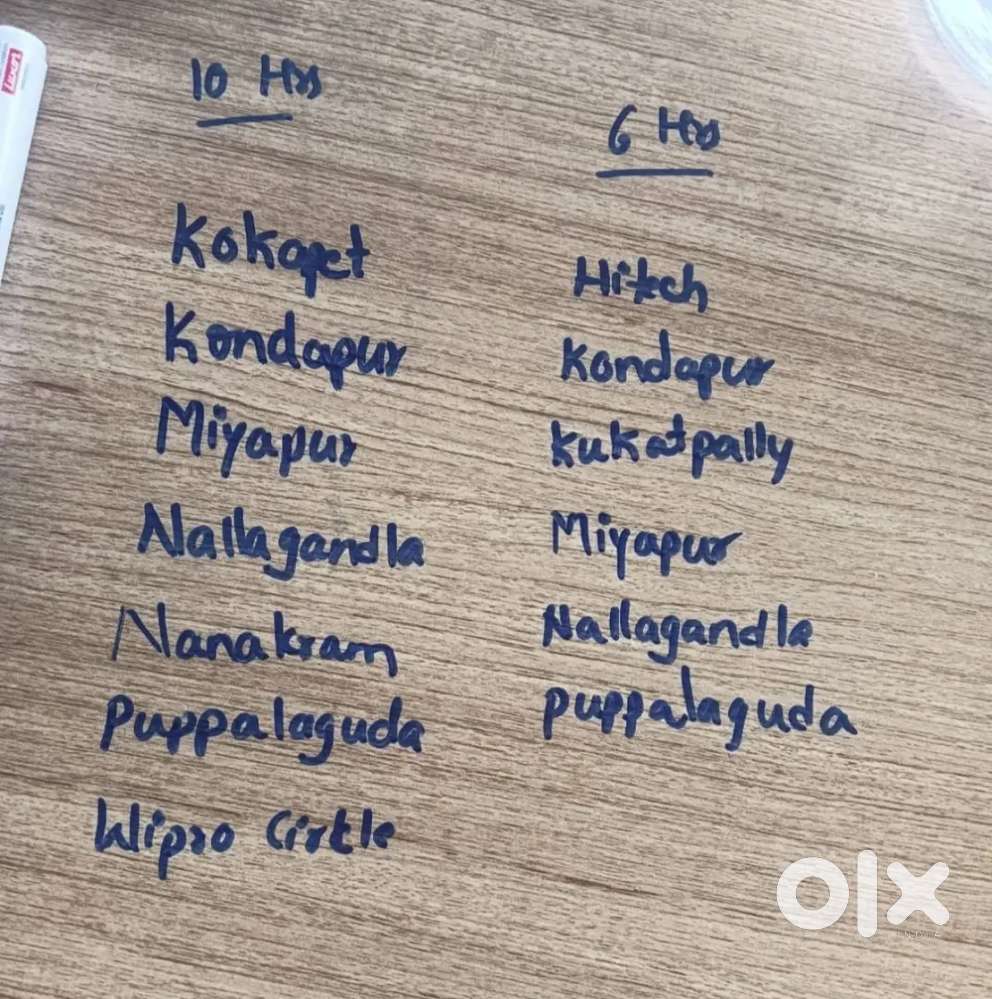 10 Hrs
Kokapet
Kondapur
Miyapur
Nallagandla
Nanakram
Puppalaguda
Wipro Cirtle
6 Hrs
Hitech
Kondapur
Kukatpally
Miyapur
Nallagandla
puppalaguda
olx